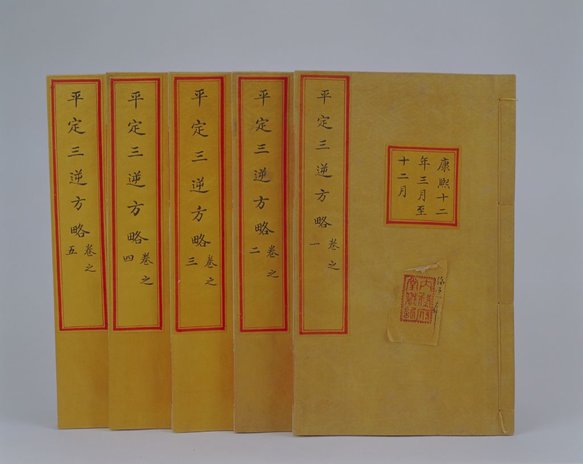 平定三逆方略 卷之一
康熙十二
年三月至
十二月
平定三逆方略 卷之二
平定三逆方略 卷之三
平定三逆方略 卷之四
平定三逆方略 卷之五